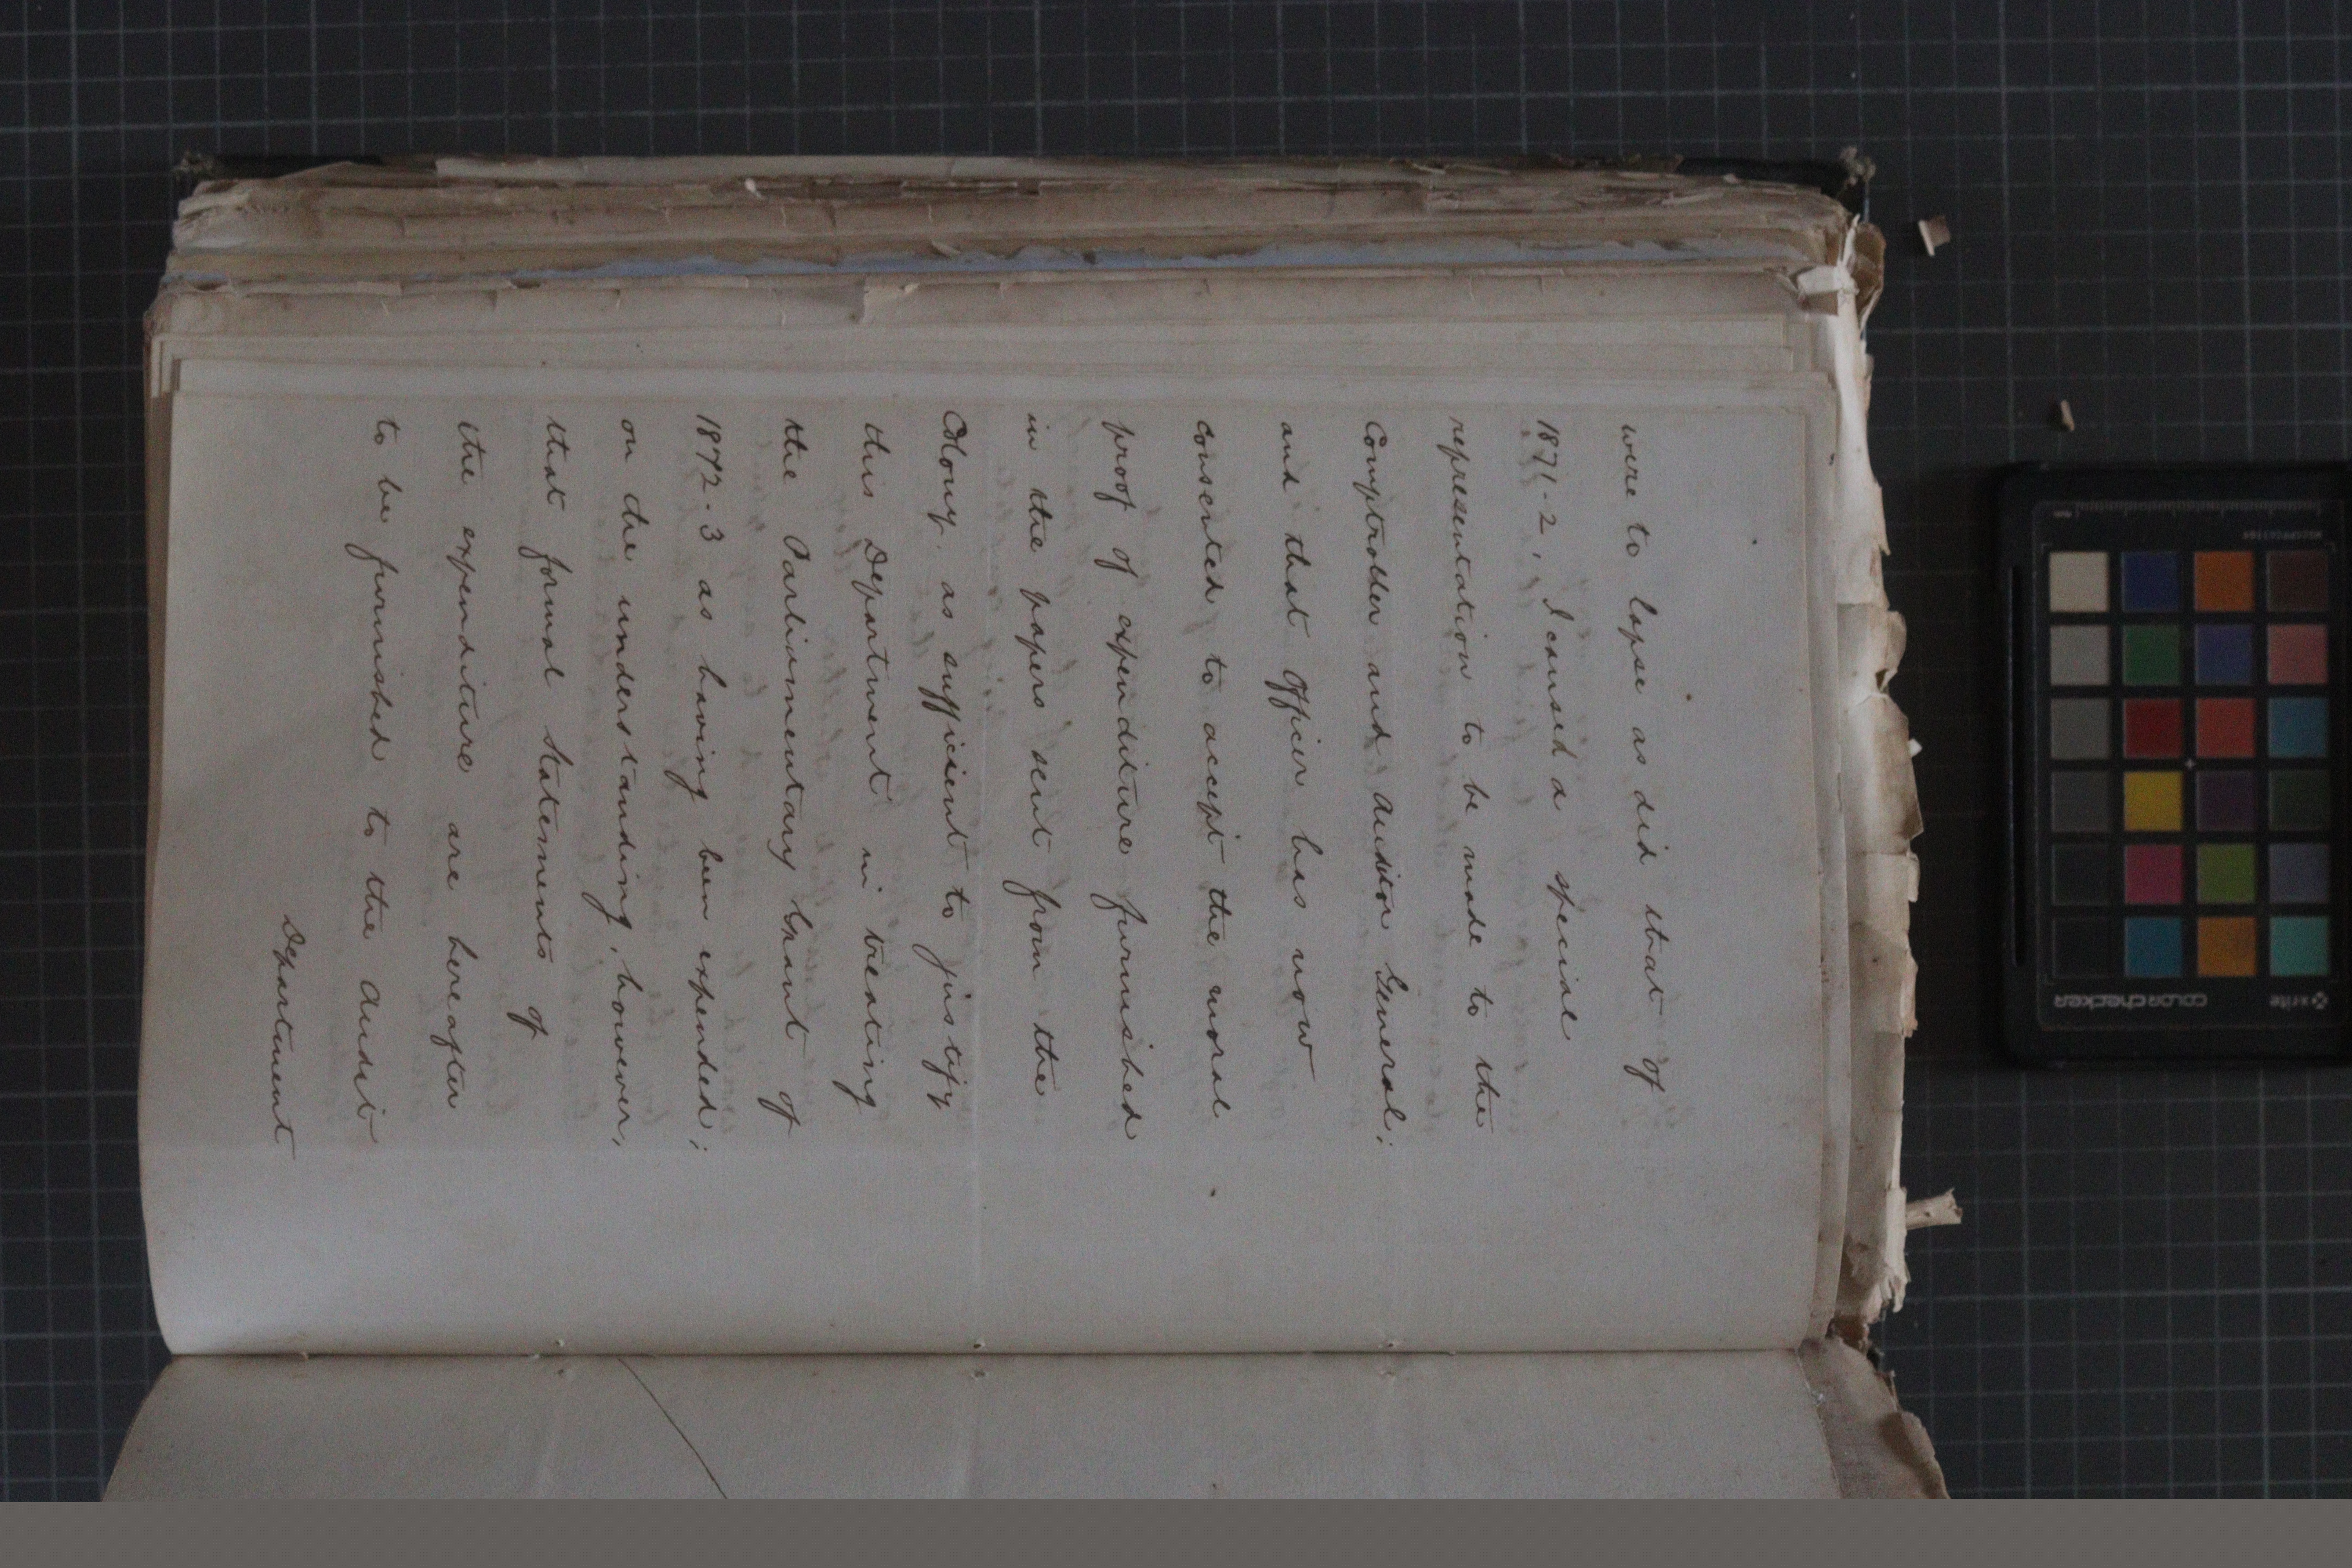 were to lapse as did that of
1871-2, I caused a special
representation to be made to the
Comptroller and Auditor General:
and that Officer has now
consented to accept the moral
proof of expenditure furnished
in the papers sent from the
Colony, as sufficient to justify
this Department in treating
the Parliamentary Grant of
1872-3 as having been expended;
on the understanding, however,
that formal Statements of
the expenditure are hereafter
to be furnished to the Audit
Department
x-rite
colorchecker